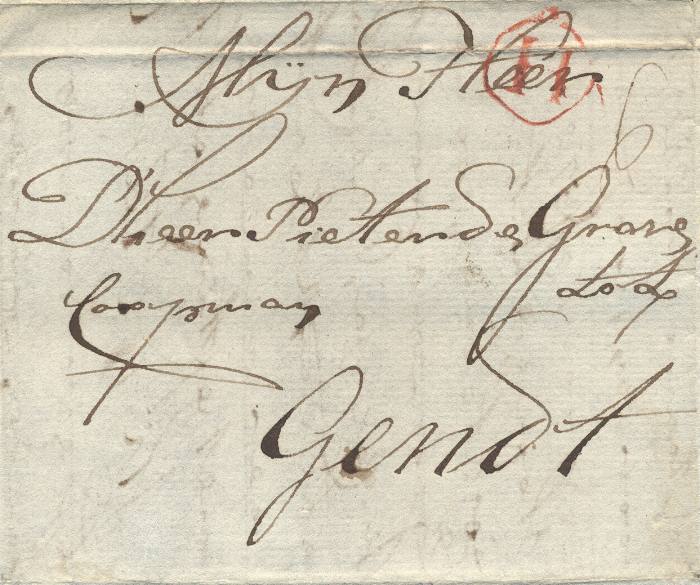 Mijn Heer
D'heer Pieter de Grave
Coopman tot
Gendt